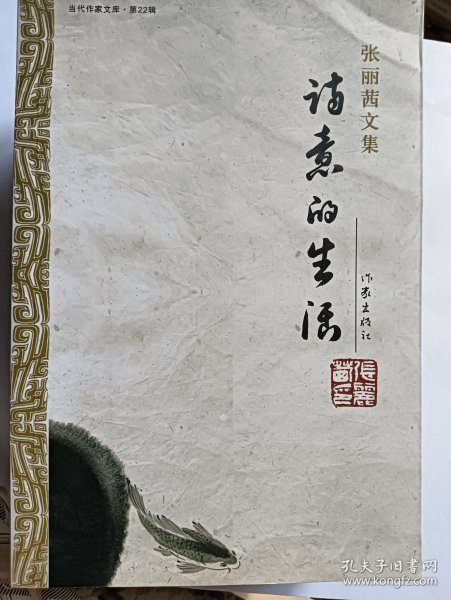 当代作家文库·第22辑
张丽茜文集
诗意的生活
作家出版社
張麗茜印
孔夫子旧书网
www.kongfz.com